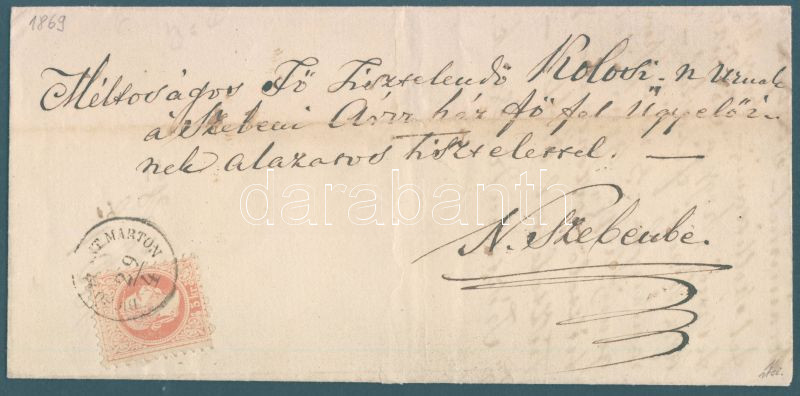 1869
Méltoságos Fő Tisztelendő Kolosi-n Urnak
a Szebeni Árva ház fő fel Ügyelői-
nek alazatos tisztelettel. —
N. Szebenbe.
darabanth
MARTON
29